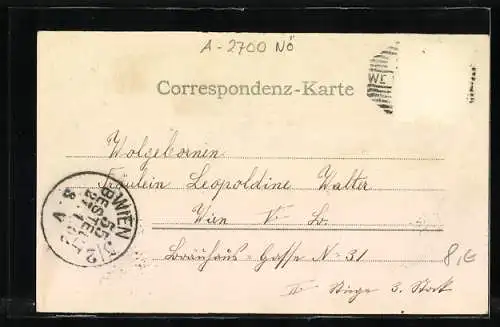 A - 2700 NÖ
Correspondenz-Karte
WE
Wolgebornen
Fräulein Leopoldine Walter
Wien V. B.
Brauhaus-Gasse N: 31
II Stiege 3. Stock
8,€
WIEN
55
BESTELLT
8 - V